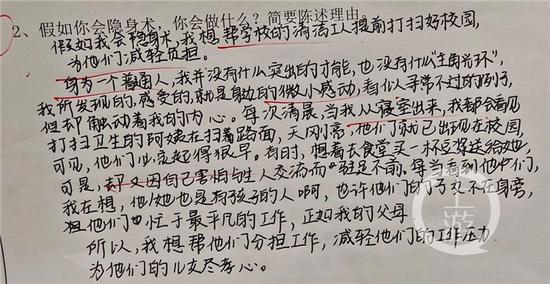 2、假如你会隐身术，你会做什么？简要陈述理由。
假如我会隐身术，我想帮学校的清洁工人提前打扫好校园，
为他们减轻负担。
身为一个普通人，我并没有什么突出的才能，也没有什么"主角光环"，
我所发现的，感受的，就是身边的微小感动，看似寻常不过的例子，
但却触动着我的内心。每次清晨，当我从寝室出来，我都会看见
打扫卫生的阿姨在扫着路面，天刚亮，他们就已出现在校园，
可见，他们必定起得很早。有时，想着去食堂买一杯豆浆送给她，
可是，却又因自己害怕与生人交流而踌躇不前。每当看到他们，
我在想，他/她也是有孩子的人啊，也许他们的子女不在身旁，
但他们也忙于最平凡的工作，正如我的父母。
所以，我想帮他们分担工作，减轻他们的工作压力，
为他们的儿女尽孝心。
上游